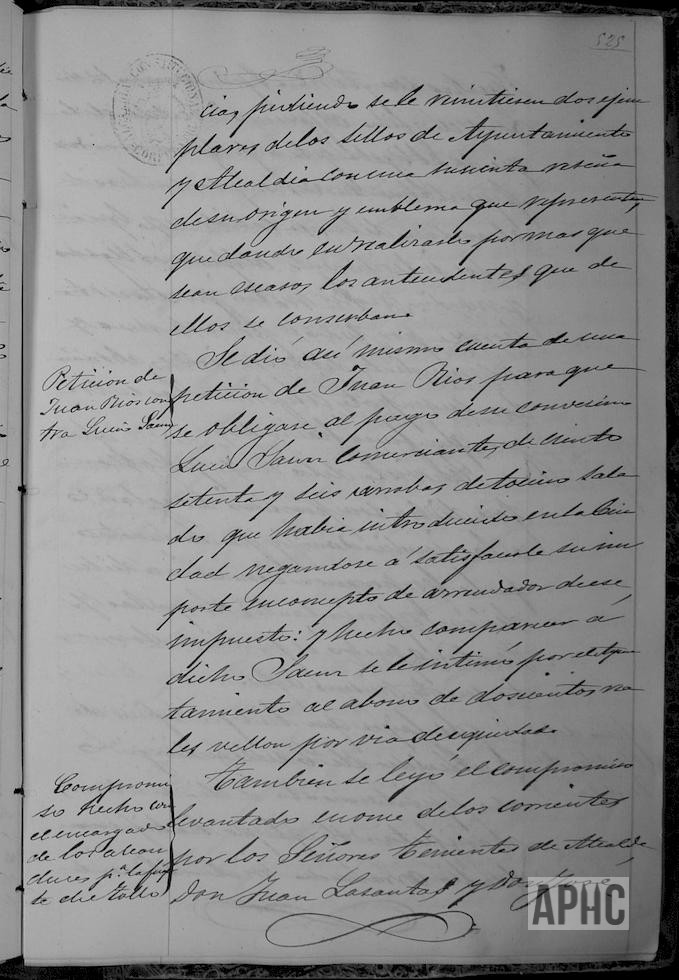 525
cias, pidiendo se le remitiesen dos ejem
plares de los sellos de Ayuntamiento
y Alcaldia con una sucinta reseña
de su origen y emblema que representen,
quedando en realizarlo por mas que
sean escasos los antecedentes que de
ellos se conserban.
Petición de
Juan Rios con
tra Lucio Saenz
Se dió asi mismo cuenta de una
peticion de Juan Rios para que
se obligase al pago de su convecino
Lucio Saenz comerciante, de ciento
setenta y seis arrobas de tocino sala
do que habia introducido en la Ciu
dad negandose á satisfacerle su im
porte en concepto de arrendador de ese
impuesto: y hecho comparecer á
dicho Saenz se le intimó por el Ayun
tamiento al abono de doscientos rea
les vellon por via de equidad.
Compromi
so hecho con
el encargado
de los alcan
dures pª la fuen
te de
Tambien se leyó el compromiso
levantado en once de los corrientes
por los Señores Tenientes de Alcalde
Don Juan Lasanta y Don José
APHC